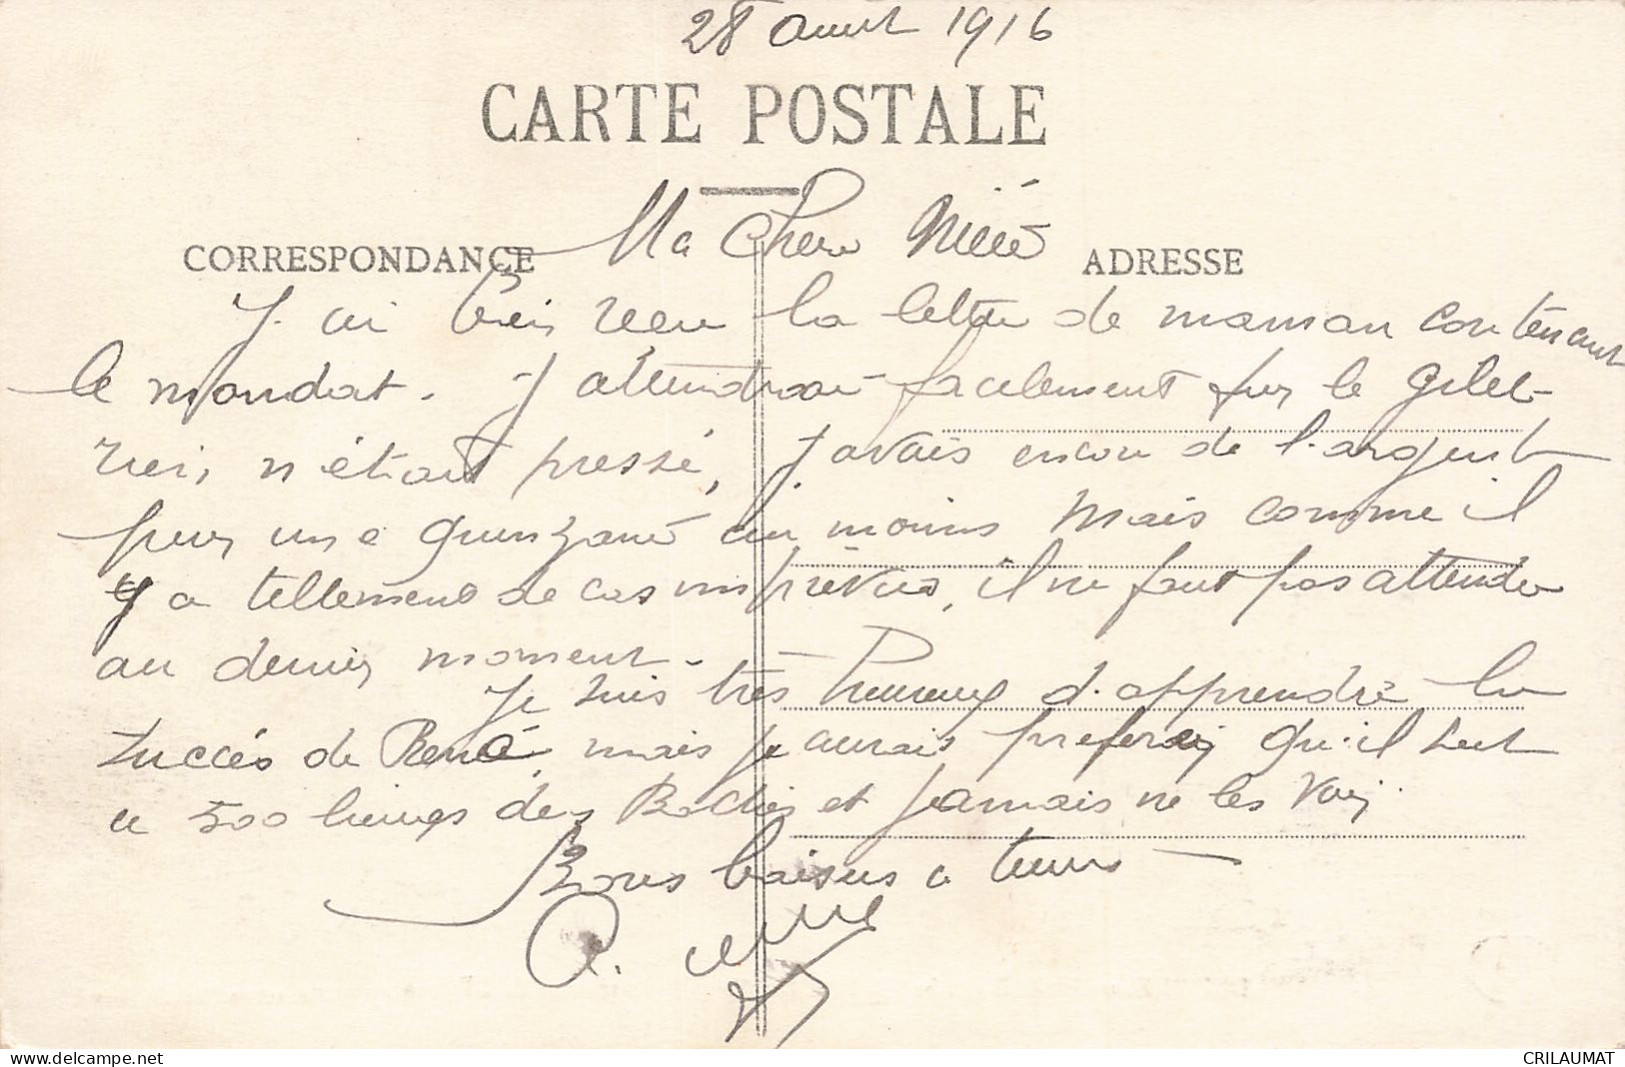 28 Aout 1916
CARTE POSTALE
Ma Chere
CORRESPONDANCE
ADRESSE
J. ai bien reçu la lettre de maman contenant
le mandat. J attendrai facilement sur le gilet
rien n'étant pressé, J avais encore de l'argent
pour une quinzaine au moins mais comme il
y a tellement de cas imprévus, il ne faut pas attendre
au dernier moment.
Je suis très heureux d'apprendre le
succès de René, mais je aurais préféré qu'il soit
a 500 lieues des Boches et jamais ne les voir.
Bons baisers a tous
delcampe.net
CRILAUMAT